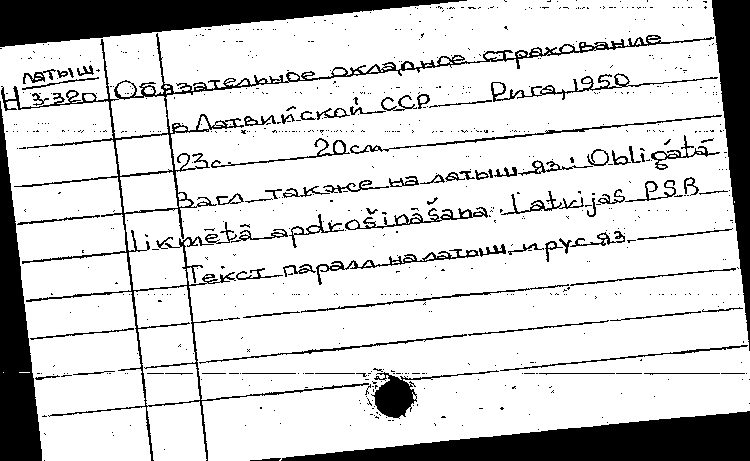 латыш.
Н 3-380
Обязательное окладное страхование
в Латвийской ССР Рига, 1950
23с. 20см.
Загл. также на латыш. яз.: Obligātā
likmētā apdrošināšana Latvijas PSR
Текст паралл. на латыш. и рус. яз.